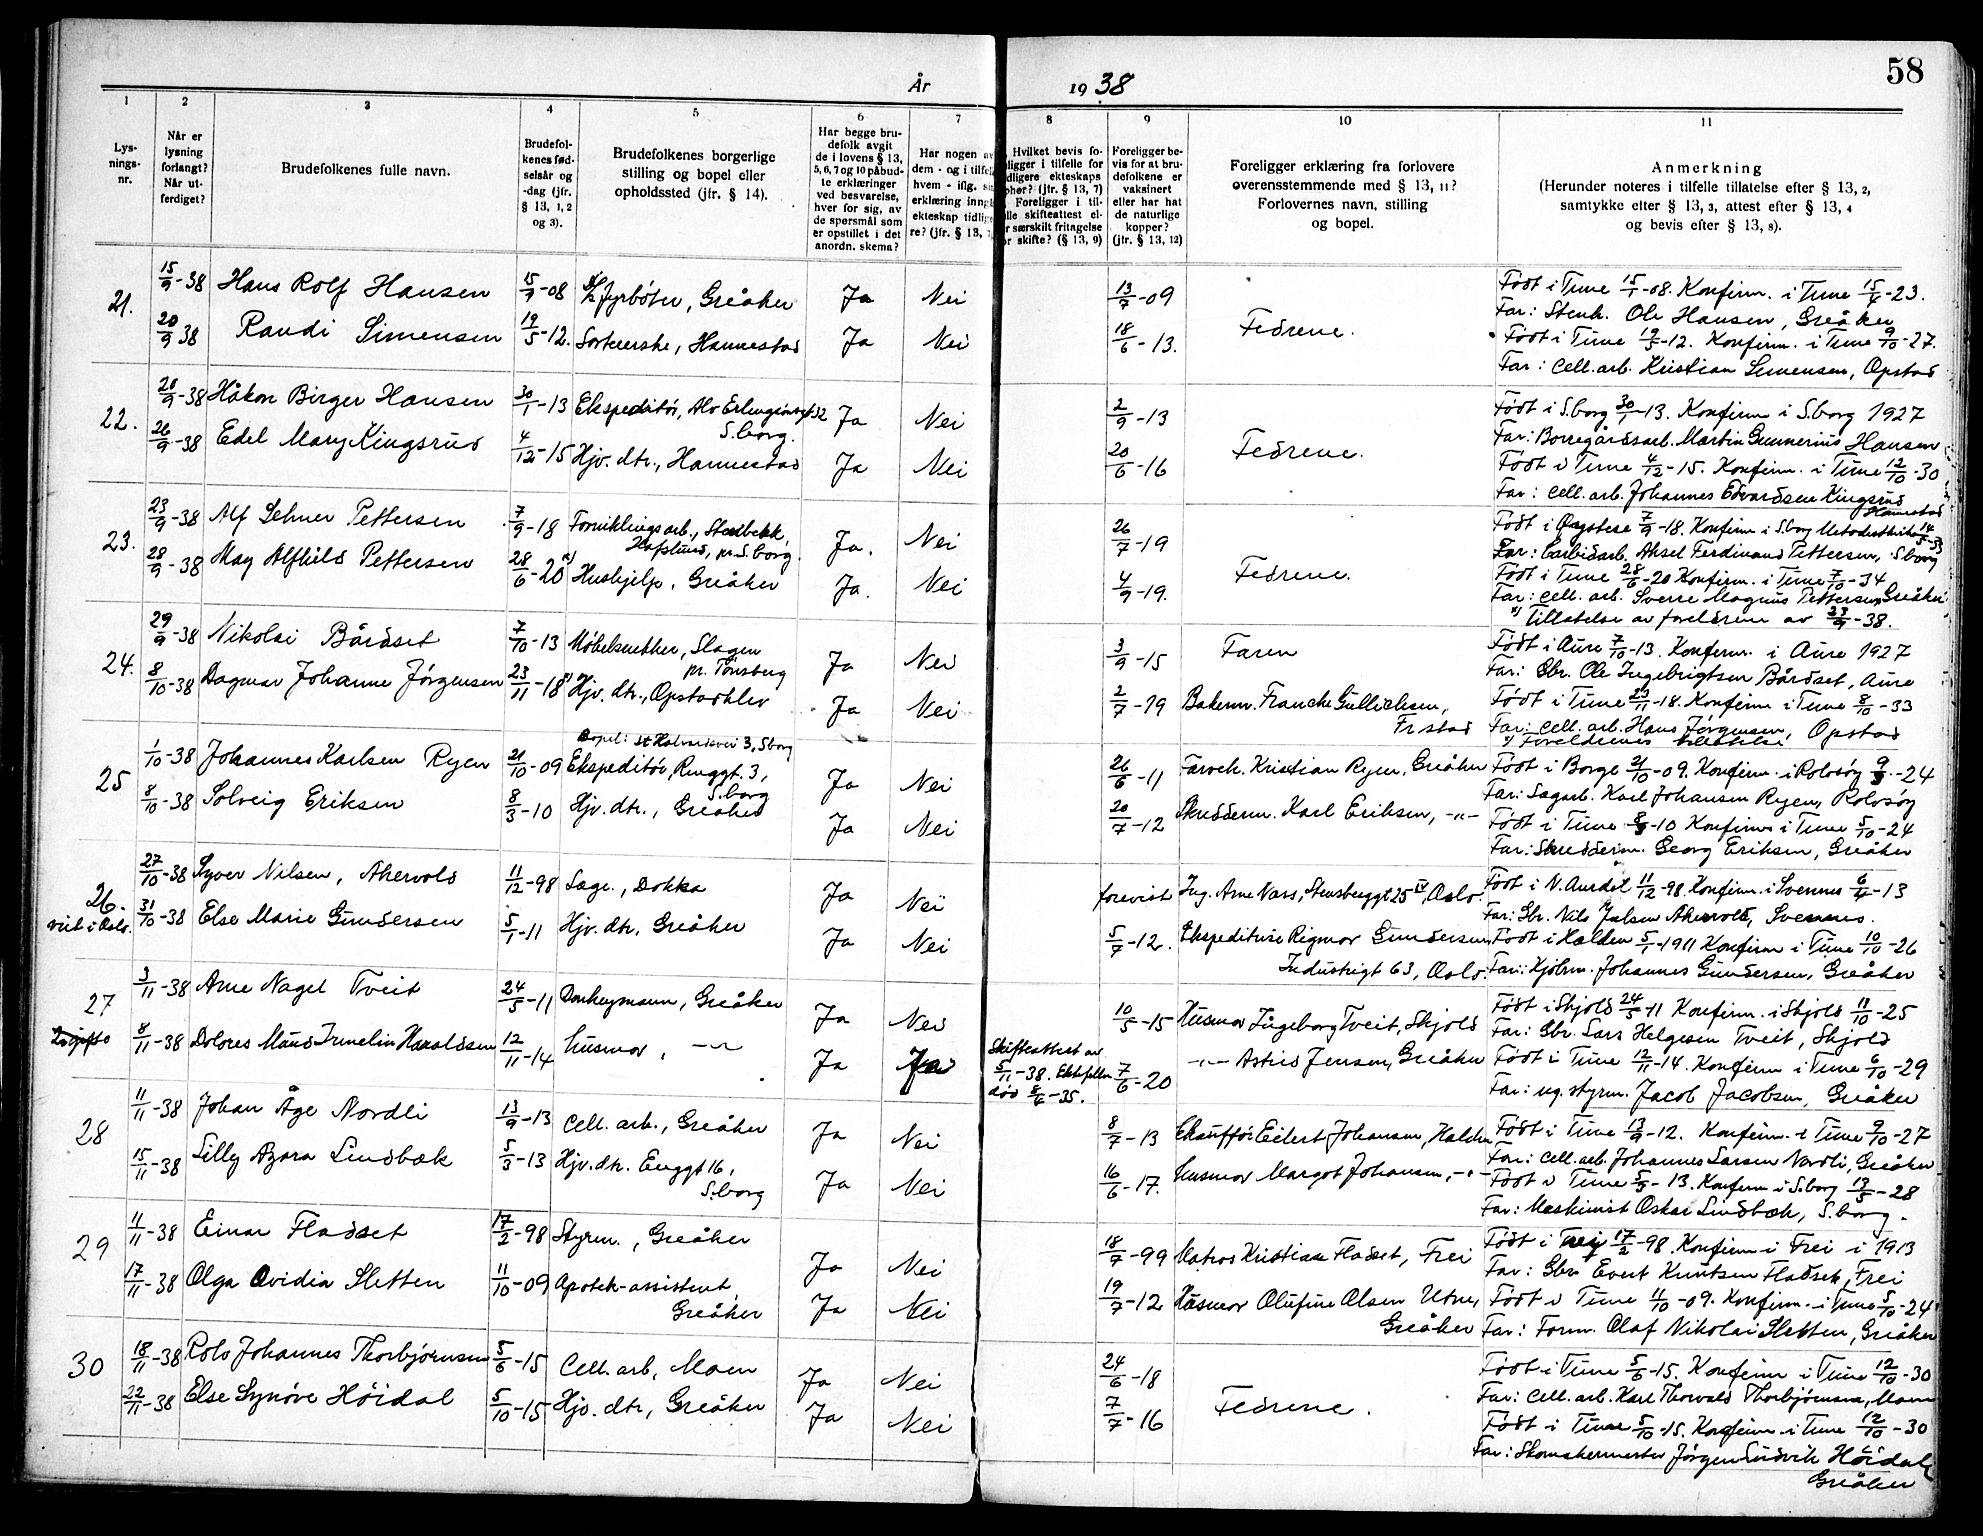 58
År 1938
1 2 3 4 5 6 7 8 9 10 11
Lysningsnr.
Når er lysning forlangt? Når utferdiget?
Brudefolkenes fulle navn.
Brudefolkenes fødselsår og -dag (jfr. § 13, 1, 2 og 3).
Brudefolkenes borgerlige stilling og bopel eller opholdssted (jfr. § 14).
Har begge brudefolk avgit de i lovens § 13, 5, 6, 7 og 10 påbudte erklæringer ved besvarelse, hver for sig, av de spørsmål som er opstillet i det anordn. skema?
Har nogen av dem - og i tilfelle hvem - iflg. sin erklæring inngått ekteskap tidligere? (jfr. § 13, 7
Hvilket bevis foligger i tilfelle for dligere ekteskaps phør? (jfr. § 13, 7) Foreligger i tilfelle skifteattest eller særskilt fritagelse for skifte? (§ 13, 9)
Foreligger bevis for at brudefolkene er vaksinert eller har hat de naturlige kopper? (jfr. § 13, 12)
Foreligger erklæring fra forlovere overensstemmende med § 13, 11? Forlovernes navn, stilling og bopel.
Anmerkning (Herunder noteres i tilfelle tillatelse efter § 13, 2, samtykke efter § 13, 3, attest efter § 13, 4 og bevis efter § 13, 8).
21. 15/9-38 Hans Rolf Hansen 15/1-08 Fyrbøter, Greåker Ja Nei 13/7-09 Fedrene. Født i Tune 15/1-08. Konfirm. i Tune
Far: Stenh. Ole Hansen, Greåker
20/9 38 Randi Simensen 19/5-12. Sorterерske, Hannestad Ja Nei 18/6-13. Født i Tune 19/5-12. Konfirm. i Tune 9/10-27.
Far: Cell. arb. Kristian Simensen, Opstad
22. 20/9-38 Håkon Birger Hansen 30/1-13 Ekspeditør, Alv Erlingsonsgt 32 S.borg. Ja Nei 2/9-13 Fedrene. Født i S.borg 30/1-13. Konfirm i S.borg 1927
Far: Borregårdsarb. Martin Gunnerius Hansen
26/9-38 Edel Mary Kingsrud 4/12-15 Hjv. dtr., Hannestad Ja Nei 20/6-16 Født i Tune 4/12-15. Konfirm. i Tune 12/10-30
Far: Cell. arb. Johannes Edvardsen Kingsrud Hannestad
23. 23/9-38 Alf Pettersen 7/9-18 Hafslund, pr. S.borg. Ja. Nei 26/7-19 Fedrene. Født i 7/9-18. Konfirm i S.borg
Far: Carbidarb. Aksel Ferdinand Pettersen, S.borg
28/9-38 May Alfhild Pettersen 28/6-20 x) Hushjelp, Greåker Ja. Nei 4/9-19. Født i Tune 28/6-20 Konfirm. i Tune 7/10-34
Far: Cell. arb. Sverre Magnus Pettersen Greåker
x) Tillatelse av foreldrene av 23/9-38.
24. 29/9-38 Nikolai Bårdset 7/10-13 Møbelsnekker, Slagen pr. Tønsberg Ja Nei 3/9-15 Faren Født i Aure 7/10-13. Konfirm. i Aure 1927
Far: Gbr. Ole Ingebrigtsen Bårdset, Aure
8/10-38 Dagmar Johanne Jørgensen 23/11-18 x) Hjv. dtr., Opstadklev Ja Nei 2/7-19 Bakerm. Francke Gullichsen, Fr.stad Født i Tune 23/11-18. Konfirm i Tune 8/10-33
Far: Cell. arb. Hans Jørgensen, Opstad
x) Foreldrenes tillatelse
25 1/10-38 Johannes Karlsen Ryen 21/10-09 Bopel: St. Halvardsvei 3, S.borg Ekspeditør, Ringgt. 3, S.borg Ja Nei 26/6-11 Kristian Ryen, Greåker Født i Borge 21/10-09. Konfirm. i Rolvsøy -24
Far: Sagarb. Karl Johansen Ryen, Rolvsøy
8/10-38 Solveig Eriksen 8/3-10 Hjv. dtr., Greåker Ja Nei 20/7-12 Skredderm. Karl Eriksen, -"- Født i Tune 8/3-10 Konfirm i Tune 5/10-24
Far: Skredderm. Georg Eriksen, Greåker
26. viet i Oslo. 27/10-38 Syver Nilsen, Akervold 11/12-98 Sage., Dokka Ja Nei forevist Ing. Arne Nass, Stensberggt 25 IV, Oslo. Født i N. Aurdal 11/12-98 Konfirm. i Svennes -13
Far: Gbr. Nils Akervold, Svennes.
31/10-38 Else Marie Gundersen 5/1-11 Hjv. dtr, Greåker Ja Nei 5/7-12. Ekspeditrise Rigmor Gundersen Industrigt 63, Oslo. Født i Halden 5/1-1911 Konfirm i Tune 10/10-26
Far: Hjølm. Johannes Gundersen, Greåker
27 3/11-38 Arne Nagel Tveit 24/5-11 Donkeymann, Greåker Ja Nei 10/5-15 Husmor Ingeborg Tveit, Skjold Født i Skjold 24/5-11 Konfirm. i Skjold 11/10-25
Far: Gbr. Lars Helgesen Tveit, Skjold
8/11-38 Dolores Maud Irmelin Haraldsen 12/11-14 husmor, -"- Ja Ja Skifteattest av 5/11-38. Ektefellen død -35. 7/6-20 -"- Astrid Jensen, Greåker Født i Tune 12/11-14. Konfirm i Tune 6/10-29
Far: styrm. Jacob Jacobsen, Greåker
28 11/11-38 Johan Åge Nordli 13/9-13 Cell. arb., Greåker Ja Nei 8/7-13 Chauffør Eilert Johansen, Halden Født i Tune 13/9-12. Konfirm. i Tune 9/10-27
Far: Cell. arb. Johannes Larsen Nordli, Greåker
15/11-38 Lilly Azora Lindbæk 5/3-13 Hjv. dtr. Enggt 16, S.borg Ja Nei 16/6-17. husmor Margot Johansen, -"- Født i Tune 5/3-13. Konfirm i S.borg 13/5-28
Far: Maskinist Oskar Lindbæk, S.borg.
29 11/11-38 Einar Fladset 17/2-98 Styrm., Greåker Ja Nei 18/7-99 Matros Kristian Fladset, Frei Født i Frei 17/2-98. Konfirm i Frei i 1913
Far: Gbr. Evert Knutsen Fladset, Frei
17/11-38 Olga Ovidia Sletten 11/10-09 Apotek-assistent, Greåker Ja Nei 19/7-12 Husmor Olufine Olsen Utne, Greåker Født i Tune 11/10-09. Konfirm. i Tune 5/10-24
Far: Form. Olaf Nikolai Sletten, Greåker
30 18/11-38 Rolv Johannes Thorbjørnsen 5/6-15 Cell. arb, Moen Ja Nei 24/6-18 Fedrene. Født i Tune 5/6-15. Konfirm i Tune 12/10-30
Far: Cell. arb. Karl Thorvald Thorbjørnsen, Moen
22/11-38 Else Synøve Høidal 5/10-15 Hjv. dtr, Greåker Ja Nei 7/7-16 Født i Tune 5/10-15. Konfirm. i Tune 12/10-30
Far: Skomakermester Jørgen Ludvik Høidal, Greåker